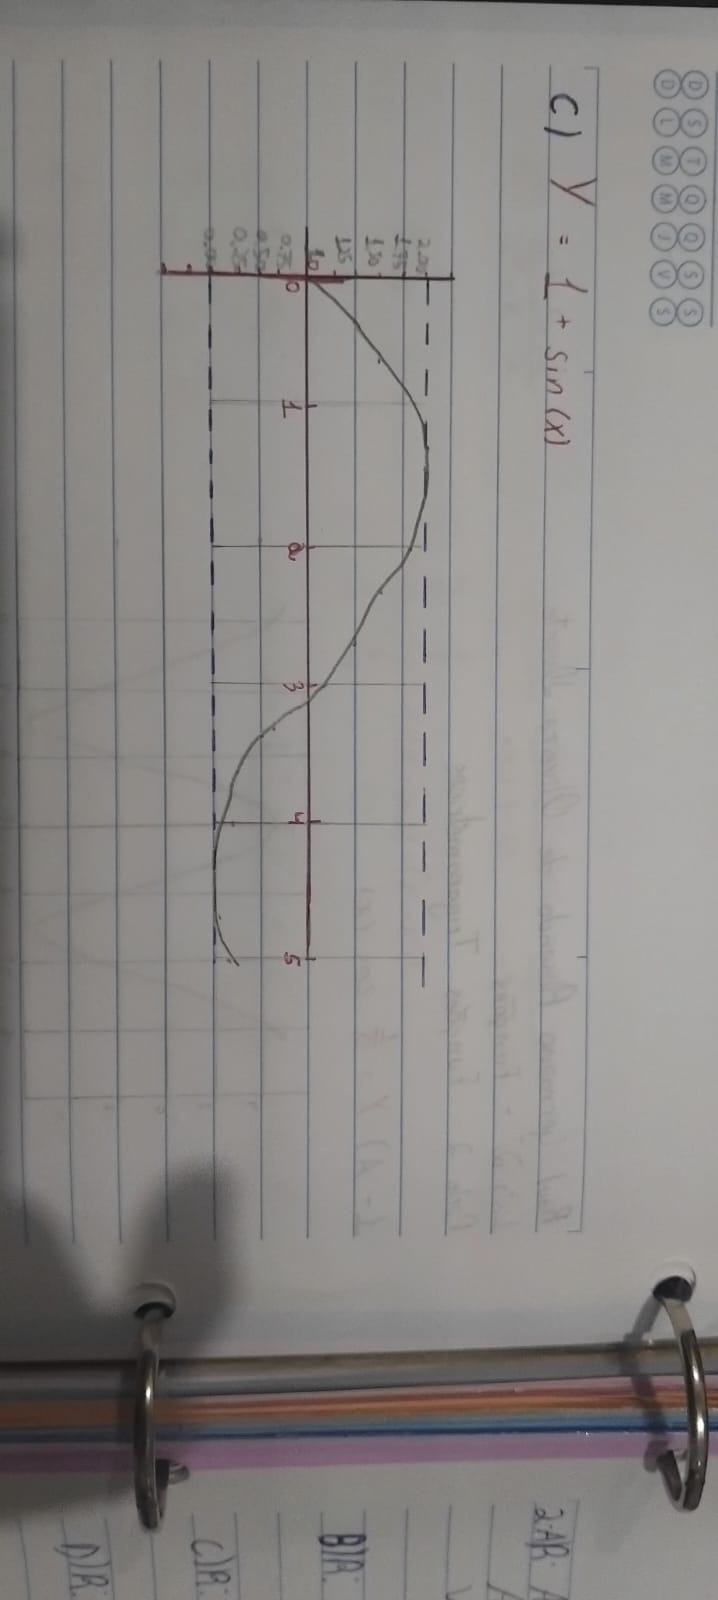 D S T Q Q S S
D L M M J V S
C) Y = 1 + sin(x)
2.00
1.75
1.50
1.25
1.0
0.75
0.50
0.25
0.0
0 1 2 3 4 5
2·A)R: A
B)R:
C)R:
D)R: